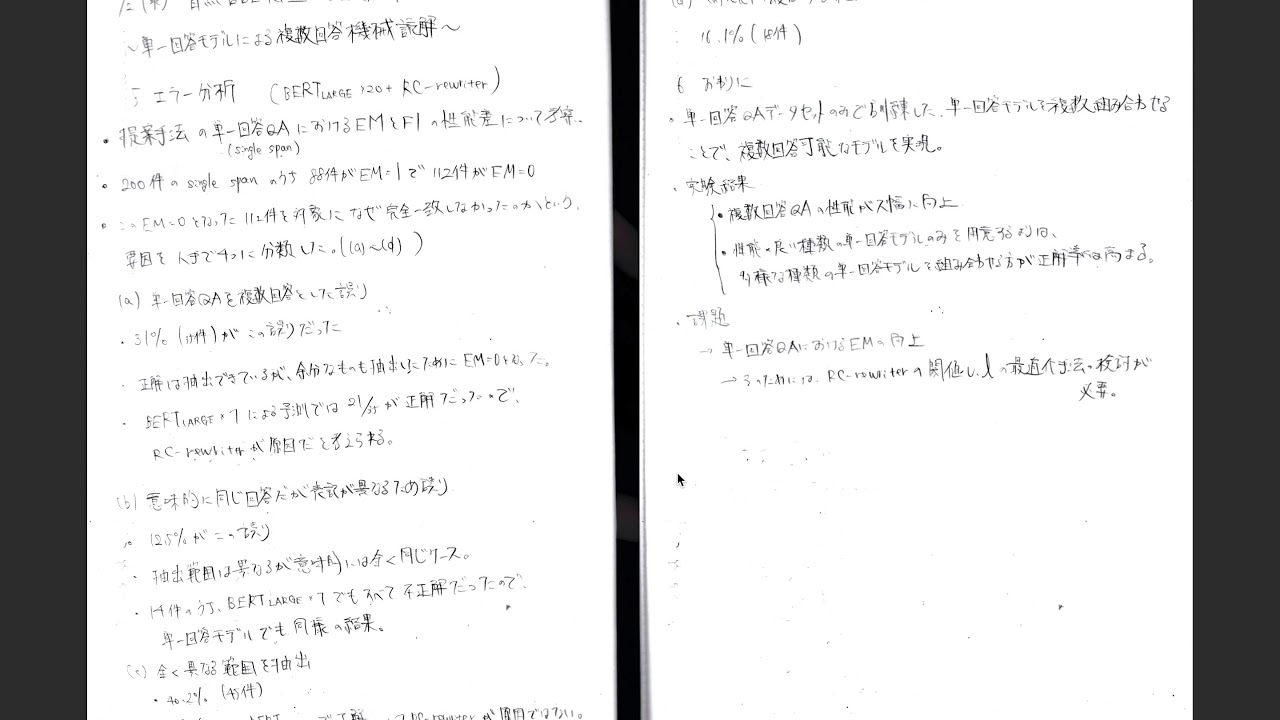 ~単一回答モデルによる複数回答機械読解~
5 エラー分析 (BERT LARGE ×20 + RC-rewriter)
・提案手法の単一回答QAにおけるEMとF1の性能差について考察。
(single span)
・200件のsingle spanのうち 88件がEM=1で 112件がEM=0
・このEM=0となった112件を対象になぜ完全一致しなかったのかという、
要因を人手で4つに分類した。((a)~(d))
(a) 単一回答QAを複数回答とした誤り
・31% (35件)がこの誤りだった
・正解は抽出できているが、余分なものも抽出したためにEM=0となった。
・BERT LARGE ×7 による予測では 21/35 が正解だったので、
RC-rewriterが原因だと考えられる。
(b) 意味的に同じ回答だが表記が異なるため誤り
・12.5%がこの誤り
・抽出範囲は異なるが意味的には全く同じケース。
・14件のうち、BERT LARGE ×7 でもすべて不正解だったので、
単一回答モデルでも同様の結果。
(c) 全く異なる範囲を抽出
・40.2% (45件)
RC-rewriterが原因ではない。
16.1% (18件)
6 おわりに
・単一回答QAデータセットのみで訓練した、単一回答モデルを複数組み合わせる
ことで、複数回答可能なモデルを実現。
・実験結果
・複数回答QAの性能が大幅に向上
・性能の良い種類の単一回答モデルのみを用意するよりは、
多様な種類の単一回答モデルを組み合わせる方が正解率は高まる。
・課題
→ 単一回答QAにおけるEMの向上
→ そのためには、RC-rewriterの閾値 l の最適化手法の検討が
必要。